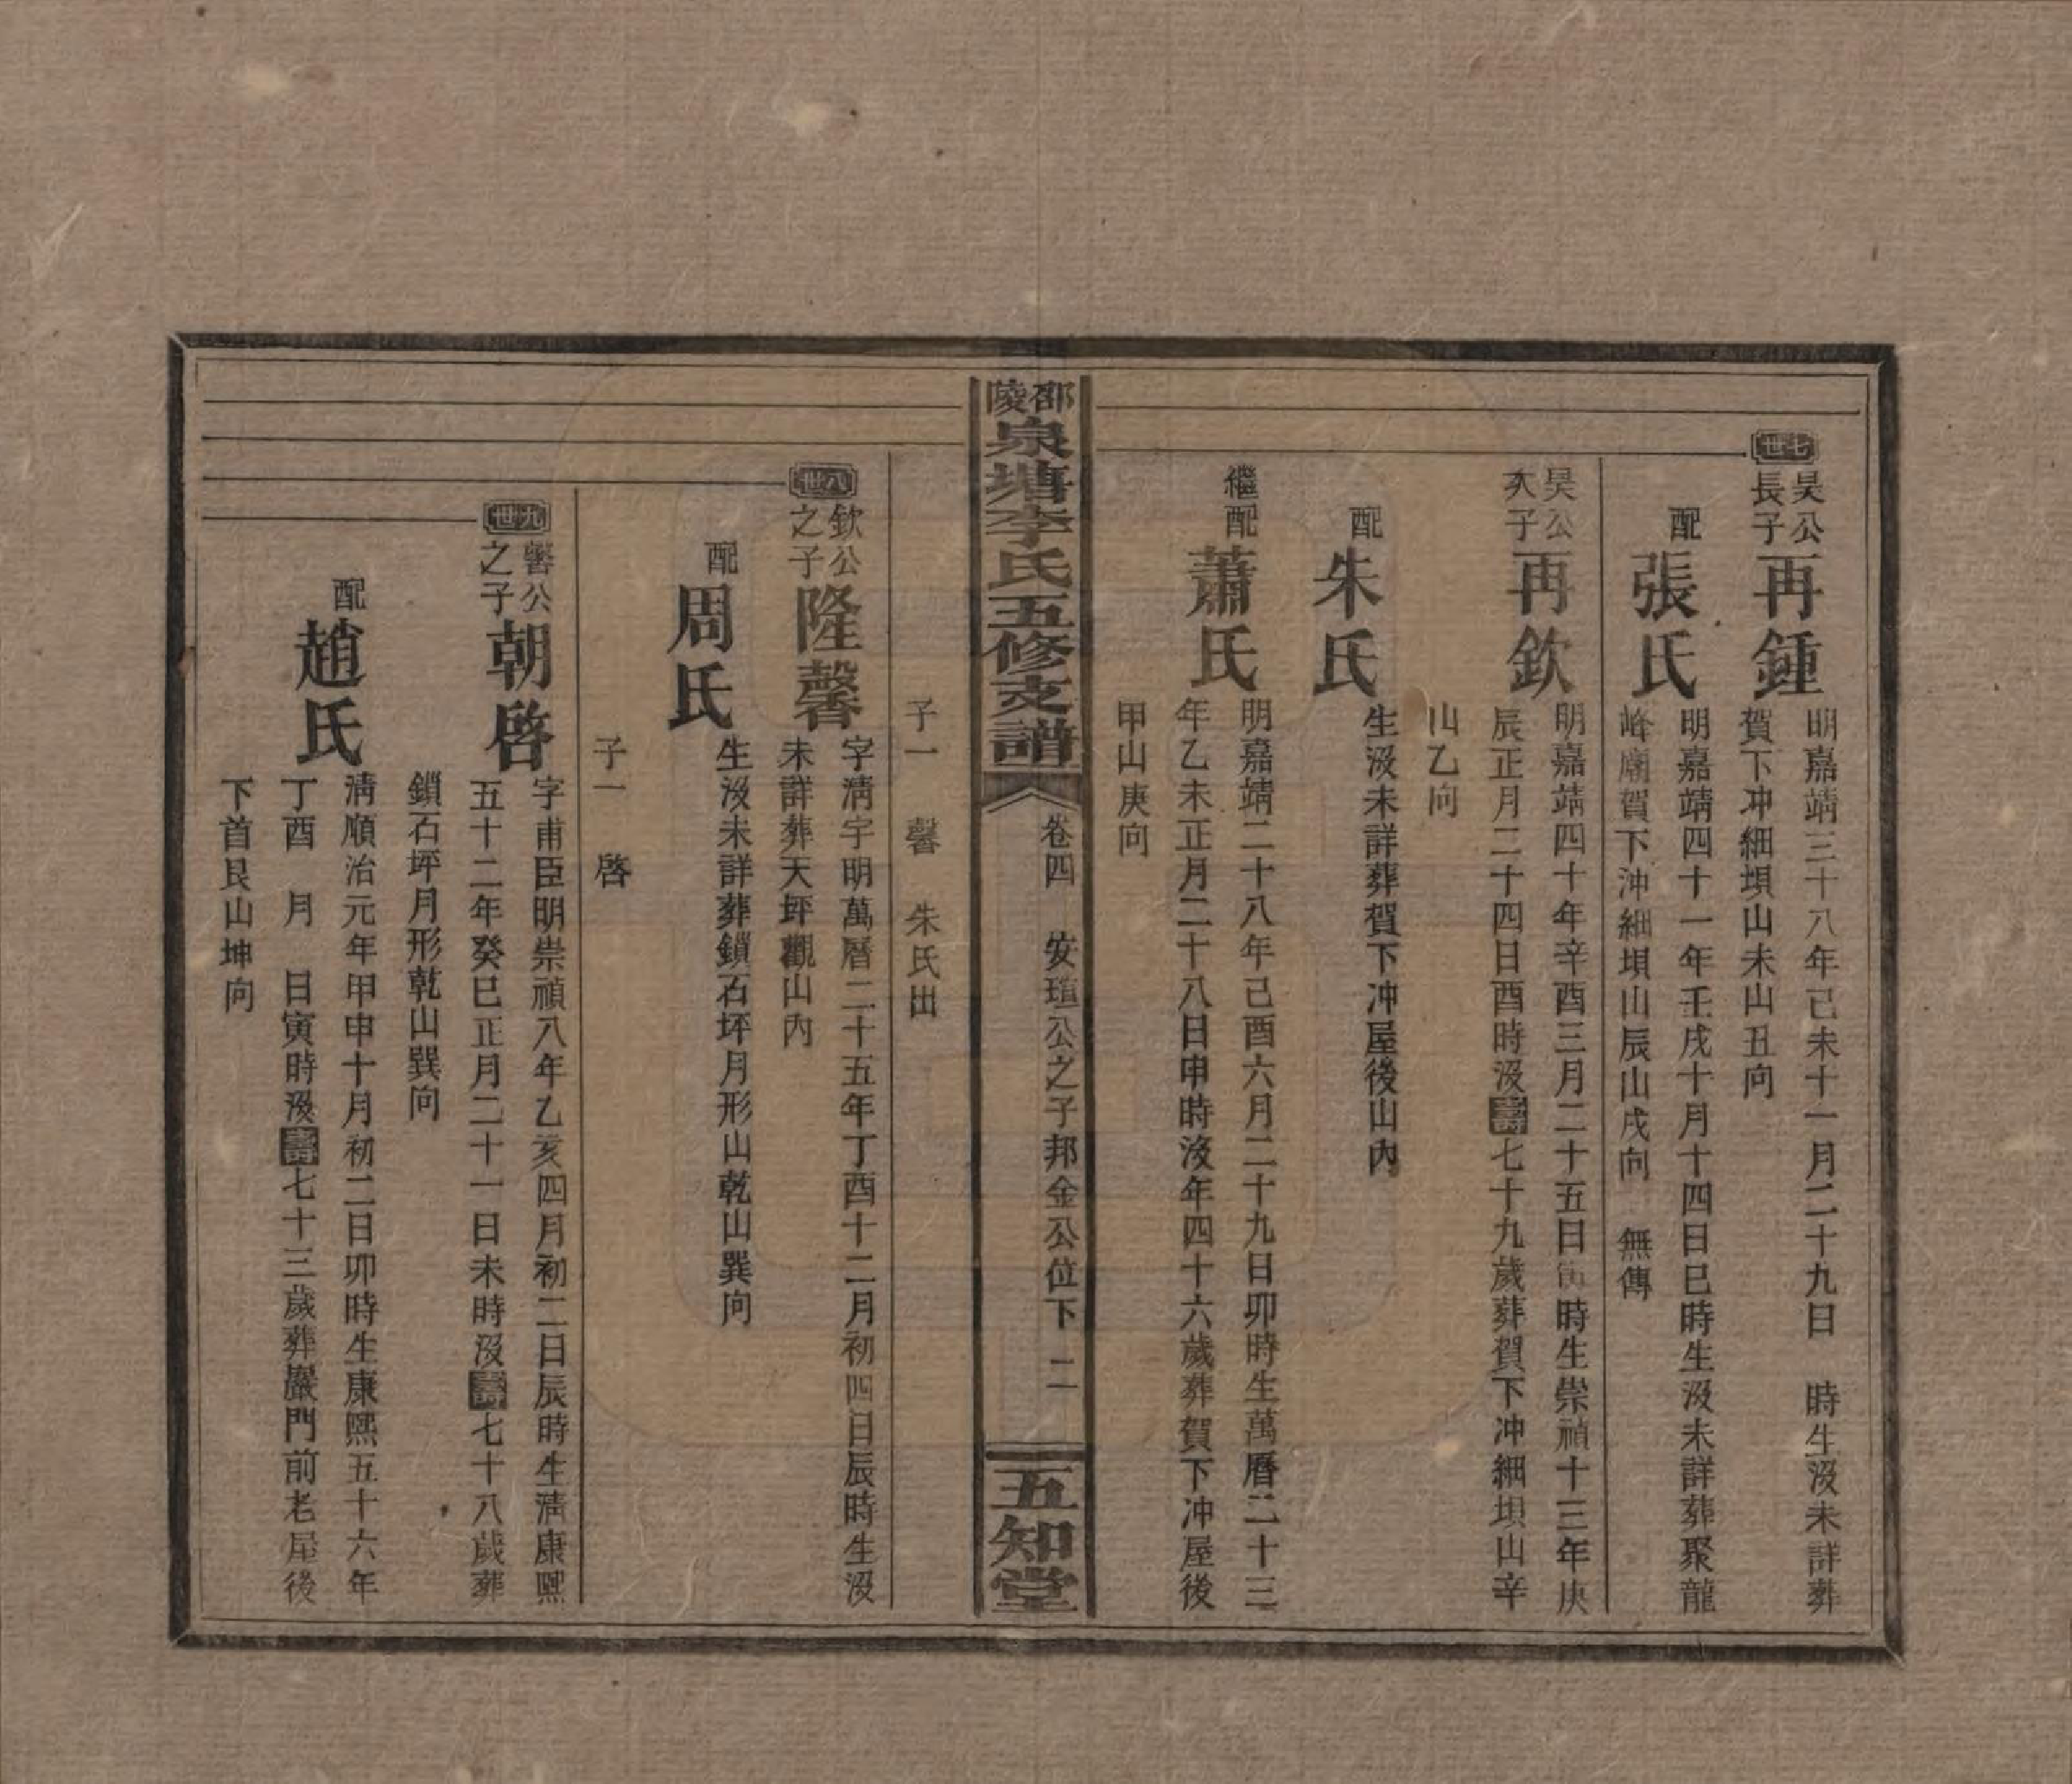 七世
昊公長子
再鍾
明嘉靖三十八年己未十一月二十九日　時生沒未詳葬
賀下冲細垻山未山丑向
配
張氏
明嘉靖四十一年壬戌十月十四日巳時生沒未詳葬聚龍
峰廟賀下冲細垻山辰山戌向　無傳
昊公次子
再欽
明嘉靖四十年辛酉三月二十五日寅時生崇禎十三年庚
辰正月二十四日酉時沒壽七十九歲葬賀下冲細垻山辛
山乙向
配
朱氏
生沒未詳葬賀下冲屋後山內
繼配
蕭氏
明嘉靖二十八年己酉六月二十九日卯時生萬曆二十三
年乙未正月二十八日申時沒年四十六歲葬賀下冲屋後
甲山庚向
邵陵
泉塘李氏五修支譜
卷四　安瑄公之子邦金公位下　二
五知堂
子一　馨　朱氏出
八世
欽公之子
隆馨
字清宇明萬曆二十五年丁酉十二月初四日辰時生沒
未詳葬天坪觀山內
配
周氏
生沒未詳葬鎖石坪月形山乾山巽向
子一　啓
九世
馨公之子
朝啓
字甫臣明崇禎八年乙亥四月初二日辰時生清康熙
五十二年癸巳正月二十一日未時沒壽七十八歲葬
鎖石坪月形乾山巽向
配
趙氏
清順治元年甲申十月初二日卯時生康熙五十六年
丁酉　月　日寅時沒壽七十三歲葬巖門前老屋後
下首艮山坤向